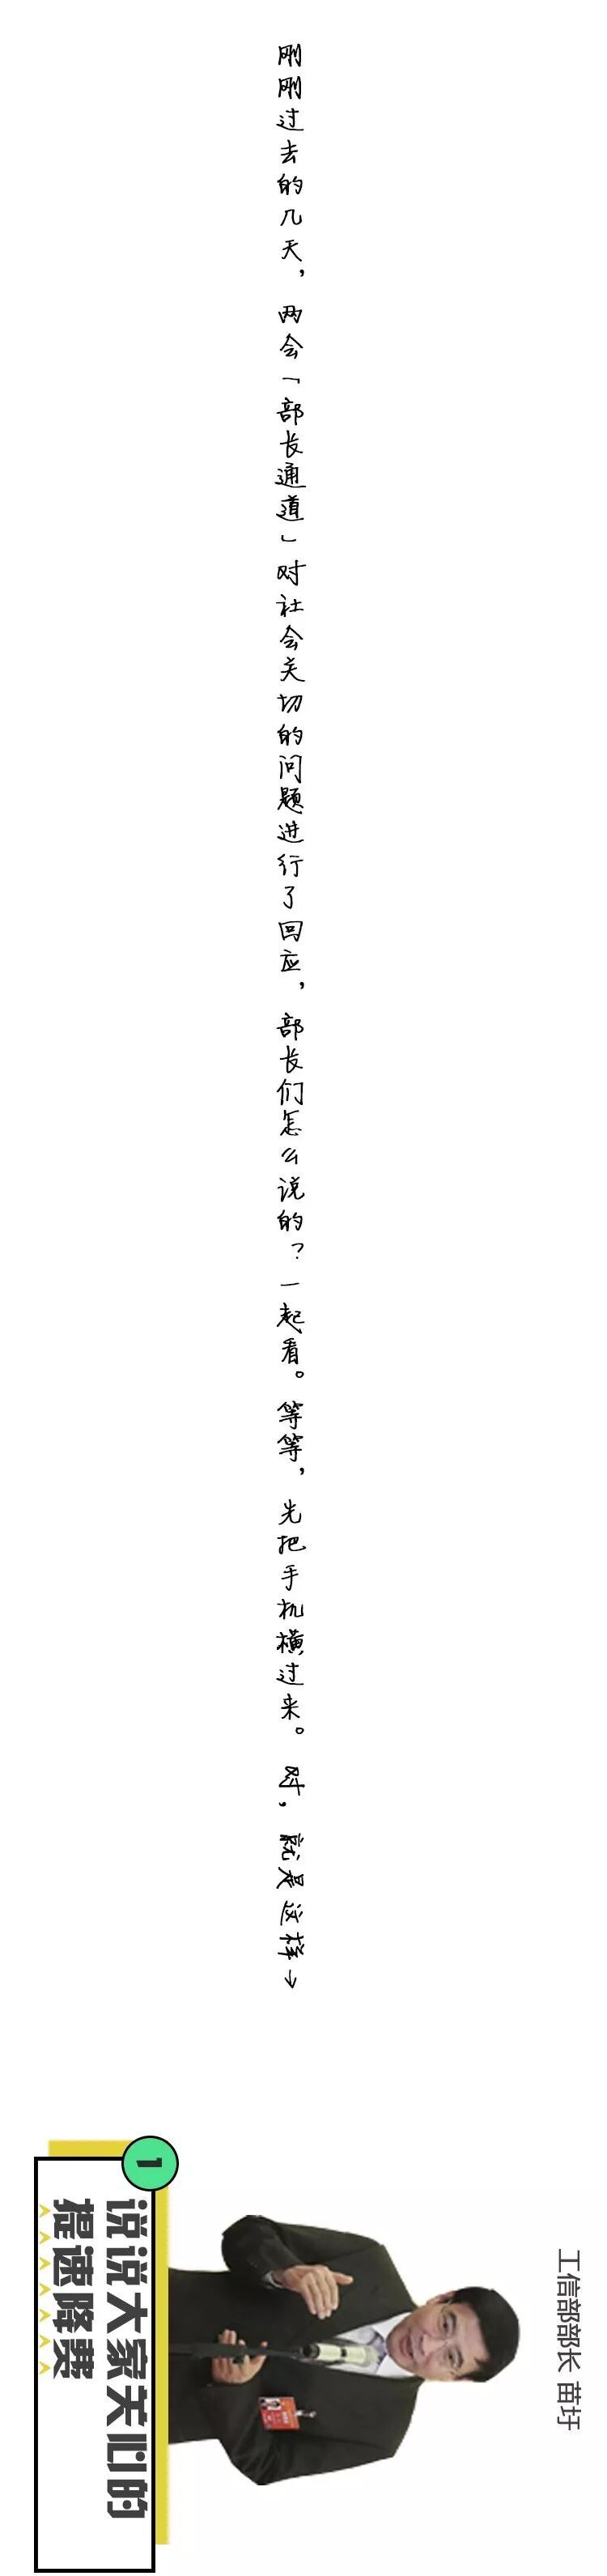 刚刚过去的几天，两会「部长通道」对社会关切的问题进行了回应，部长们怎么说的？一起看。等等，先把手机横过来。对，就是这样→
工信部部长 苗圩
1
说说大家关心的
提速降费